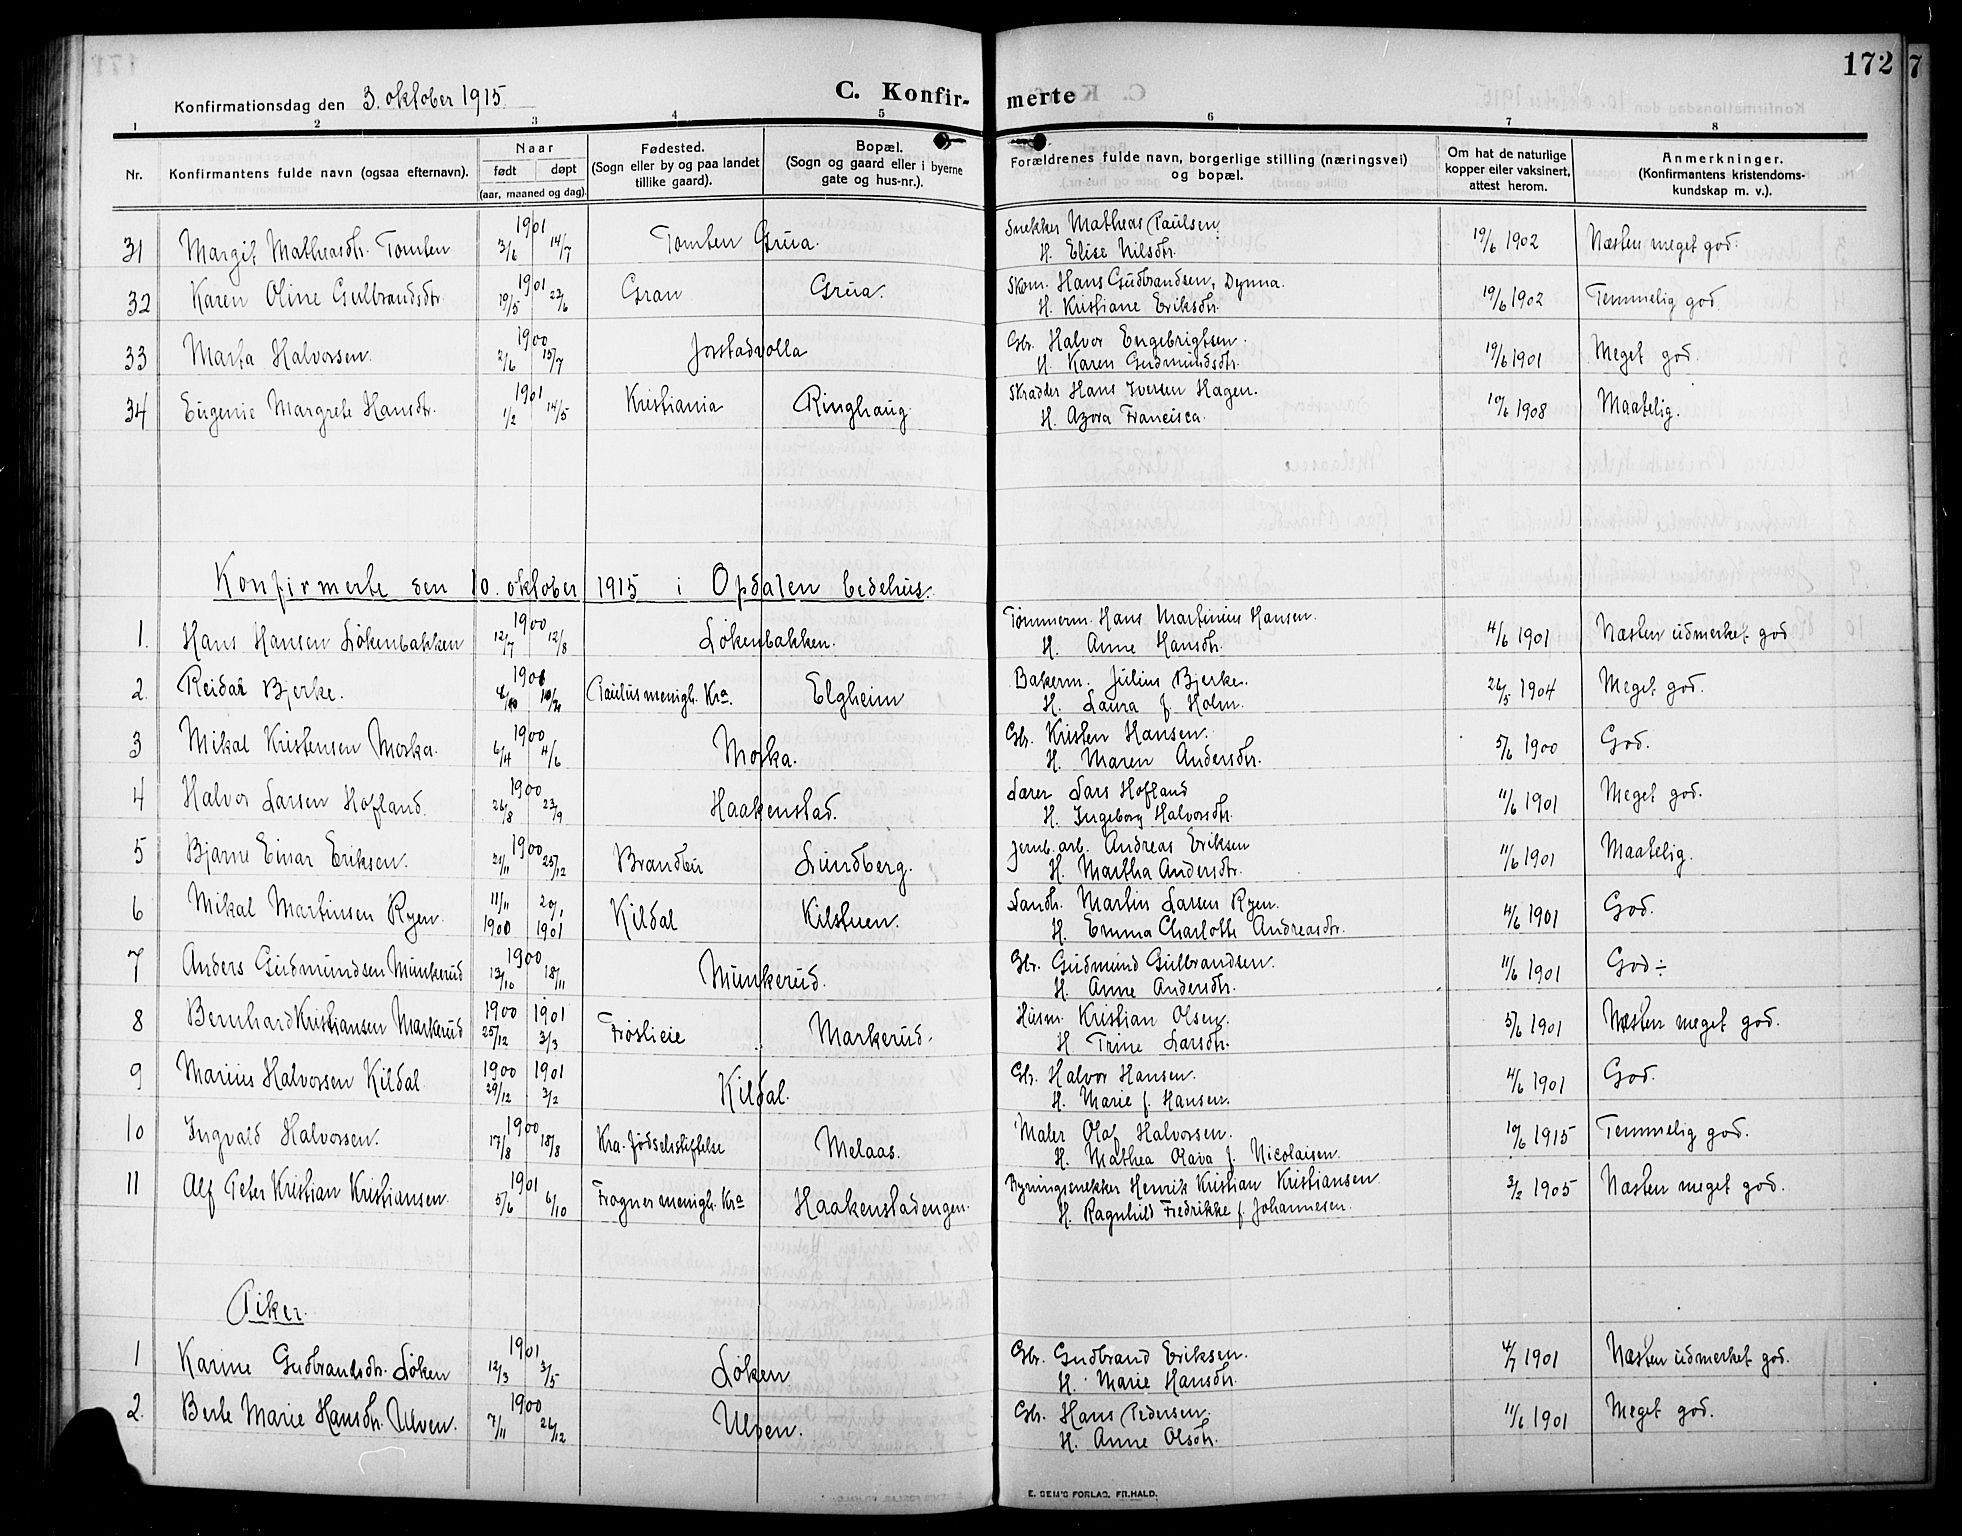 172
7
Konfirmationsdag den 3. oktober 1915.
C. Konfir-merte
1 2 3 4 5 6 7 8
Nr.
Konfirmantens fulde navn (ogsaa efternavn).
Naar
født døpt
(aar, maaned og dag).
Fødested.
(Sogn eller by og paa landet
tillike gaard).
Bopæl.
(Sogn og gaard eller i byerne
gate og hus-nr.).
Forældrenes fulde navn, borgerlige stilling (næringsvei)
og bopæl.
Om hat de naturlige
kopper eller vaksinert,
attest herom.
Anmerkninger.
(Konfirmantens kristendoms-
kundskap m. v.).
31 Margit Matheasdtr. Tomten 1901 3/6 14/7 Tomten Grua. Snekker Matheas Paulsen 19/6 1902 Næsten meget god.
H. Elise Nilsdtr.
32 Karen Oline Gulbrandsdtr. 1901 19/5 23/6 Gran Grua. Skom. Hans Gudbrandsen, Dynna. 19/6 1902 Temmelig god.
H. Kristiane Eriksdtr.
33 Marta Halvorsen. 1900 2/6 15/7 Jorstadvolla Gbr. Halvor Engebrigtsen. 19/6 1901 Meget god.
H. Karen Gudmundsdtr.
34 Eugenie Margrete Hansdtr. 1901 1/2 14/5 Kristiania Ringhaug Skrædder Hans Iversen Hagen. 10/6 1908 Maatelig.
H. Azora Francisca.
Konfirmerte den 10. oktober 1915 i Opdalen bedehus.
1. Hans Hansen Løkenbakken 1900 12/7 12/8 Løkenbakken. Tømmerm. Hans Martinius Hansen. 4/6 1901 Næsten udmerket god
H. Anne Hansdtr.
2. Reidar Bjerke. Paulus menigh. Kra. Elgheim Bakerm. Julius Bjerke. 26/5 1904 Meget god.
H. Laura f. Holm.
3 Mikal Kristensen Morka. 1900 6/4 4/6 Morka. Gbr. Kristen Hansen. 5/6 1900 God.
H. Maren Andersdtr.
4 Halvor Larsen Hofland. 1900 26/8 23/9 Haakenstad. Lærer Lars Hofland 11/6 1901 Meget god.
H. Ingeborg Halvorsdtr.
5 Bjarne Einar Eriksen. 1900 21/11 25/12 Brandbu Lundberg. Jernb. arb. Andreas Eriksen 11/6 1901 Maatelig.
H. Martha Andersdtr.
6 Mikal Martinsen Ryen. 11/11 1900 20/1 1901 Kildal Kilstuen. Landh. Martin Larsen Ryen. 4/6 1901 God.
H. Emma Charlotte Andreasdtr.
7 Anders Gudmundsen Munkerud 1900 13/10 18/11 Munkerud. Gbr. Gudmund Gulbrandsen. 11/6 1901 God÷
H. Anne Andersdtr.
8 Bernhard Kristiansen Markerud 1900 25/12 1901 3/3 Frøslieie Markerud. Husm. Kristian Olsen. 5/6 1901 Næsten meget god.
H. Trine Larsdtr.
9 Marius Halvorsen Kildal. 1900 29/12 1901 3/2 Kildal. Gbr. Halvor Hansen. 4/6 1901 God.
H. Marie f. Hansen.
10 Ingvald Halvorsen. 1900 17/8 18/8 Kra. fødselsstiftelse Melaas. Maler Olaf Halvorsen. 10/6 1915 Temmelig god.
H. Mathea Olava f. Nicolaisen.
11 Alf Peter Kristian Kristiansen. 1901 5/6 6/10 Frogner menigh. Kra Haakenstadengen. Bygningssnekker Henrik Kristian Kristiansen. 3/2 1905 Næsten meget god.
H. Ragnhild Fredrikke f. Johannesen.
Piker.
1 Karine Gudbrandsdtr. Løken 1901 12/3 3/5 Løken Gbr. Gudbrand Eriksen. 4/7 1901 Næsten udmerket god.
H. Marie Hansdtr.
2. Berte Marie Hansdtr. Ulven. 1900 7/11 26/12 Ulven. Gbr. Hans Pedersen. 11/6 1901 Meget god.
H. Anne Olsdtr.
E. SEM'S FORLAG, FR.HALD.